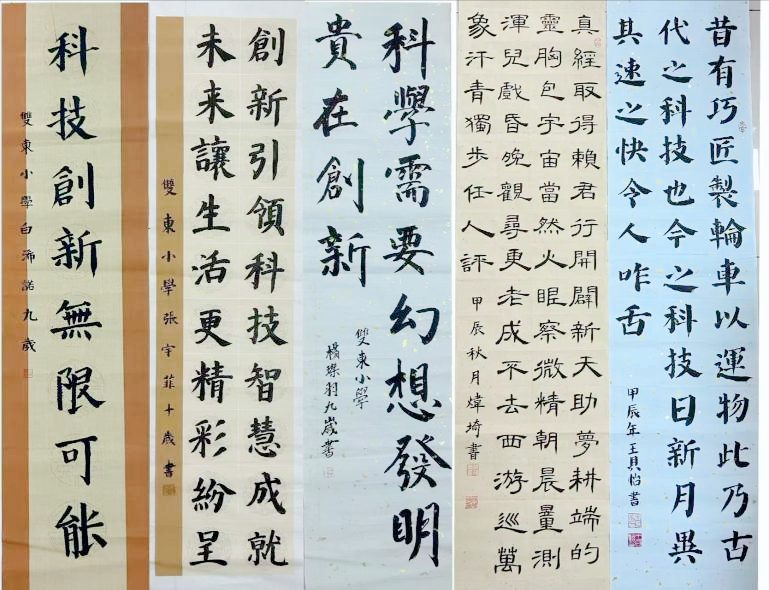 科技創新無限可能
雙東小學白沛諾九歲
創新引領科技智慧成就
未来讓生活更精彩紛呈
雙東小學張宇菲十歲書
科學需要幻想發明
貴在創新
雙東小學
楊璨羽九歲書
真經取得賴君行開闢新天助夢耕端的
靈胸包宇宙當然火眼察微精朝晨量測
渾兒戲昏晚觀尋更老成不去西游巡萬
象汗青獨步任人評
甲辰秋月煒琦書
昔有巧匠製輪車以運物此乃古
代之科技也今之科技日新月異
其速之快令人咋舌
甲辰年王貝怡書